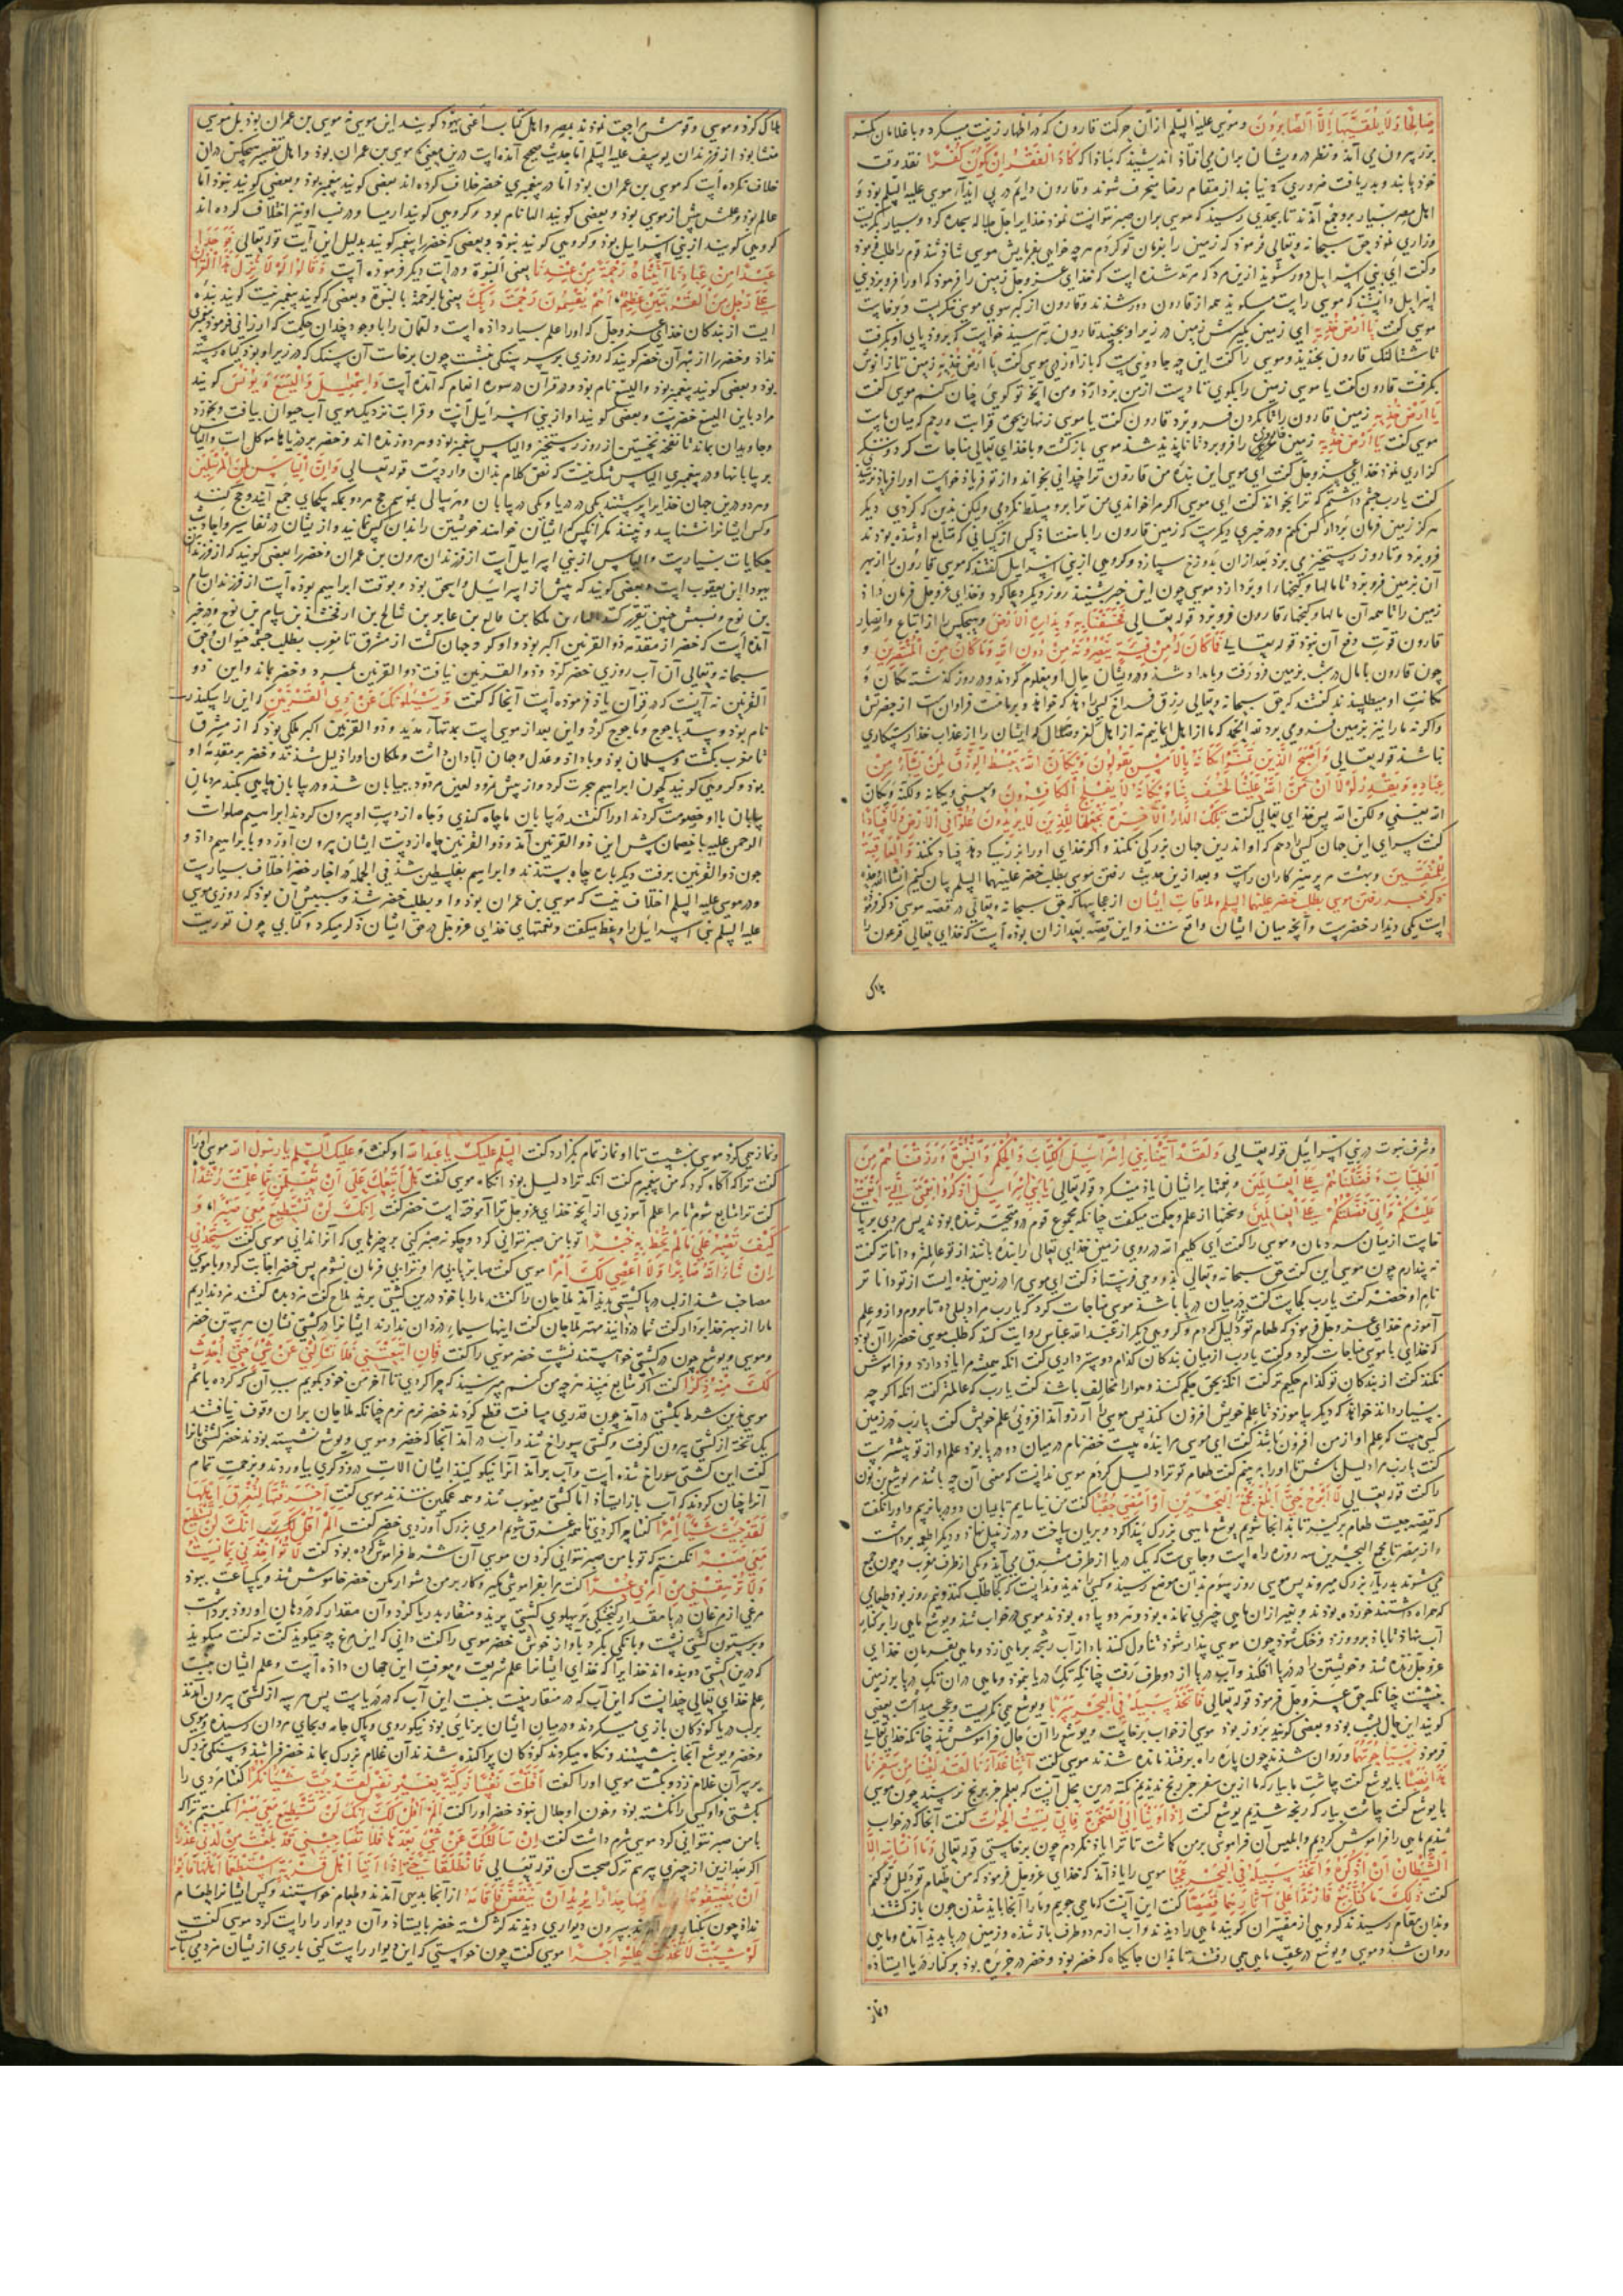 صَالِحًا وَلَا يُلَقَّيٰهَا إِلَّا الصَّابِرُونَ و موسی علیه السلم ازان حرکت قارون که در اظهار زینت میکرد و با غلامان
بیرون می آمد و نظر درویشان بران می افتاد اندیشید که مبادا که كَادَ الْفَقْرُ أَنْ يَكُونَ كُفْرًا نقد وقت
خود یابند و بدریافت ضروری از مقام رضا منحرف شوند و قارون دایم در پی ایذاء موسی علیه السلم بود و
اهل مصر بسیار برو جمع آمدند تا بحدی رسید که موسی بران صبر نتوانست نمود خدایرا جل جلاله سجده کرد و بسیار بگریست
و زاری نمود حق سبحانه و تعالی فرمود که زمین را بفرمان تو کردم هرچه خواهی بفرمایش موسی شاد شد قوم را طلب فرمود
و گفت ای بنی اسرایل دور شوید ازین مرد که مرتد شده است که خدای عزوجل زمین را فرمود که او را فرو برد بنی
اسرایل دانستند که موسی راست میگوید همه از قارون دور شدند و قارون از کبر سوی موسی ننگریست و برنخاست
موسی گفت يَا أَرْضُ خُذِيهِ ای زمین بگیرش زمین در زیر او بجنبید قارون بترسید خواست که برود پای او بگرفت
تا شتالنگ قارون بخندید و موسی را گفت این چه جادویی است که باز آوردی موسی گفت يَا أَرْضُ خُذِيهِ زمین تا زانوش
بگرفت قارون گفت یا موسی زمین را بگوی تا دست از من بردارد و من آنچه تو گویی چنان کنم موسی گفت
يَا أَرْضُ خُذِيهِ زمین قارون را تا بگردن فرو برد قارون گفت یا موسی زنهار بحق قرابت و رحم که میان ماست
موسی گفت يَا أَرْضُ خُذِيهِ زمین قارون را فرو برد تا ناپدید شد موسی بازگشت و با خدای تعالی مناجات کرد و شکر
گزاری نمود خدای عزوجل گفت ای موسی این بنده من قارون ترا چندانی بخواند و از تو فریاد خواست او را فریاد نرسیدی
گفت یارب چشم داشتم که ترا بخواند گفت ای موسی اگر مرا خواندی من ترا برو مسلط نکردمی ولیکن بدین که کردی دیگر
هرگز زمین فرمان بردار کس نکنم و در خبری دیگرست که زمین قارون را با هفتاد کس از کسانی که متابع او شده بودند
فرو برد و تا روز رستخیز می برد بعد ازان بدوزخ سپارد و گروهی از بنی اسرایل گفتند که موسی قارون را از بهر
آن بزمین فرو برد تا مالها و گنجها را او بردارد موسی چون این خبر بشنید روز دیگر دعا کرد و خدای عزوجل فرمان داد
زمین را تا همه آن مالها و گنجهاء قارون فرو برد قوله تعالی فَخَسَفْنَا بِهِ وَبِدَارِهِ الْأَرْضَ و هیچکس را از اتباع و انصار
قارون قوت دفع آن نبود قوله تعالی فَمَا كَانَ لَهُ مِنْ فِئَةٍ يَنْصُرُونَهُ مِنْ دُونِ اللَّهِ وَمَا كَانَ مِنَ الْمُنْتَصِرِينَ و
چون قارون با مال در شب بزمین فرو رفت و بامداد شد و درویشان حال او معلوم کردند و در روز گذشته مکان و
مکانت او میطلبیدند گفتند که حق سبحانه و تعالی رزق فراخ کسی را دهد که خواهد و بر ما منت فراوان است از حضرتش
و اگر نه ما را نیز بزمین فرو می برد
نا شد قوله تعالی وَأَصْبَحَ الَّذِينَ تَمَنَّوْا مَكَانَهُ بِالْأَمْسِ يَقُولُونَ وَيْكَأَنَّ اللَّهَ يَبْسُطُ الرِّزْقَ لِمَنْ يَشَاءُ مِنْ
عِبَادِهِ وَيَقْدِرُ لَوْلَا أَنْ مَنَّ اللَّهُ عَلَيْنَا لَخَسَفَ بِنَا وَيْكَأَنَّهُ لَا يُفْلِحُ الْكَافِرُونَ
الله یعنی ولکن الله پس خدای تعالی گفت تِلْكَ الدَّارُ الْآخِرَةُ نَجْعَلُهَا لِلَّذِينَ لَا يُرِيدُونَ عُلُوًّا فِي الْأَرْضِ وَلَا فَسَادًا
گفت سرای این جهان کسی را دهم که او اندرین جهان بزرگی نکند و اگر خدای او را بزرگی دهد فساد نکند وَالْعَاقِبَةُ
لِلْمُتَّقِينَ و بهشت مر پرهیزکاران راست و بعد ازین حدیث رفتن موسی بطلب خضر علیهما السلم بیان کنیم انشاالله
ذکر خبر رفتن موسی بطلب خضر علیهما السلم و ملاقات ایشان از عجایبها که حق سبحانه و تعالی در قصه موسی ذکر فرموده
است یکی دیدار خضرست و آنچه میان ایشان واقع شد و این قصه بعد ازان بوده است که خدای تعالی فرعون را
هلاک
هلاک کرد و موسی و قومش مراجعت نمودند بمصر و اهل کتاب اعنی یهود گویند این موسی نه موسی بن عمران بود بل موسی
منشا بود از فرزندان یوسف علیه السلم اما حدیث صحیح آمده است درین معنی که موسی بن عمران بود و اهل تفسیر هیچکس دران
خلاف نکرده است که موسی بن عمران بود اما در پیغمبری خضر خلاف کرده اند بعضی گویند پیغمبر بود و بعضی گویند نبود اما
عالم بود و علمش بیش از موسی بود و بعضی گویند الیا نام بود و گروهی گویند ارمیا و در نسب او نیز اختلاف کرده اند
گروهی گویند از بنی اسرایل بود و گروهی گویند نبود و بعضی که خضر را پیغمبر گویند بدلیل این آیت قوله تعالی فَوَجَدَا
عَبْدًا مِنْ عِبَادِنَا آتَيْنَاهُ رَحْمَةً مِنْ عِنْدِنَا یعنی النبوة و در آیت دیگر فرموده است وَقَالُوا لَوْلَا نُزِّلَ هَذَا الْقُرْآنُ
عَلَى رَجُلٍ مِنَ الْقَرْيَتَيْنِ عَظِيمٍ أَهُمْ يَقْسِمُونَ رَحْمَتَ رَبِّكَ یعنی بالرحمة النبوة و بعضی که گویند پیغمبر نیست گویند بنده
ایست از بندگان خدای عزوجل که او را علم بسیار داده است و لقمان را با وجود چندان حکمت که ارزانی فرمود پیغمبری
نداد و خضر را از بهر آن خضر گویند که روزی بر سر سنگی بنشست چون برخاست آن سنگ که در زیر او بود گیاه رسته
بود و بعضی گویند پیغمبر بود و الیسع نام بود و در قران در سوره انعام که آمده است وَإِسْمَاعِيلَ وَالْيَسَعَ وَيُونُسَ گویند
مراد باین الیسع خضرست و بعضی گویند او از بنی اسرائیل است و قرابت نزدیک موسی آب حیوان بیافت و بخورد
و جاویدان بماند تا نفخه نخستین از روز رستخیز و الیاس پیغمبر بود و هر دو زنده اند و خضر بر دریاها موکل است و الیاس
بر بیابانها و در پیغمبری الیاس شک نیست که نص کلام بدان واردست قوله تعالی وَإِنَّ إِلْيَاسَ لَمِنَ الْمُرْسَلِينَ
و هر دو درین جهان خدایرا پرستند یکی در دریا و یکی در بیابان و هر سالی بموسم حج هر دو بمکه یکجای جمع آیند و حج کنند
و کس ایشانرا نشناسد و نبیند مگر انکس که ایشان خواهند خویشتن را بدان کس نمایند و از ایشان در تفاسیر و احادیث
حکایات بسیارست و الیاس از بنی اسرایل است از فرزندان هرون بن عمران و خضر را بعضی گویند که از فرزندان
یهودا ابن یعقوب است و بعضی گویند که پیش از اسرائیل و اسحق بود و بوقت ابراهیم بوده است از فرزندان سام
بن نوح و نسبش چنین تقریر کنند بن ملکا بن فالغ بن عابر بن شالخ بن ارفخشد بن سام بن نوح و در خبر
آمده است که خضر از مقدمه ذوالقرنین اکبر بود و او گرد جهان گشت از مشرق تا مغرب بطلب چشمه حیوان حق
سبحانه و تعالی آن آب روزی خضر کرد و ذوالقرنین نیافت ذوالقرنین بمرد و خضر بماند و این ذو
القرنین نه آنست که در قرآن یاد فرموده است آنجا که گفت وَيَسْأَلُونَكَ عَنْ ذِي الْقَرْنَيْنِ و این را اسکندر
نام بود و سد یاجوج و ماجوج کرد و این بعد از موسی است بمدتهاء مدید و ذوالقرنین اکبر ملکی بود که از مشرق
تا مغرب بگشت و مسلمان بود و با داد و عدل و جهان آبادان داشت و ملکان او را ذلیل شدند و خضر بر مقدمه او
بود و گروهی گویند که چون ابراهیم هجرت کرد و از پیش نمرود لعین مردود ببیابان شد و در بیابان چاهی بکند مردمان
بیابان با او خصومت کردند او را گفتند در بیابان ما چاه کندی و چاه از دست او بیرون کردند ابراهیم صلوات
الرحمن علیه با خصمان پیش این ذوالقرنین آمد و ذوالقرنین چاه از دست ایشان بیرون آورد و بابراهیم داد و
چون ذوالقرنین برفت دیگر باره چاه بستدند و ابراهیم بفلسطین شد فی الجمله در اخبار خضر اختلاف بسیارست
و در موسی علیه السلم اختلاف نیست که موسی بن عمران بود و او بطلب خضر شد و سببش آن بود که روزی موسی
علیه السلم بنی اسرائیل را وعظ میگفت و نعمتهای خدای عزوجل در حق ایشان ذکر میکرد و کتابی چون توریت
و شرف نبوت در بنی اسرائیل قوله تعالی وَلَقَدْ آتَيْنَا بَنِي إِسْرَائِيلَ الْكِتَابَ وَالْحُكْمَ وَالنُّبُوَّةَ وَرَزَقْنَاهُمْ مِنَ
الطَّيِّبَاتِ وَفَضَّلْنَاهُمْ عَلَى الْعَالَمِينَ و نعمتها بر ایشان یاد میکرد قوله تعالی يَا بَنِي إِسْرَائِيلَ اذْكُرُوا نِعْمَتِيَ الَّتِي أَنْعَمْتُ
عَلَيْكُمْ وَأَنِّي فَضَّلْتُكُمْ عَلَى الْعَالَمِينَ و سخنها از علم و حکمت میگفت چنانکه مجموع قوم درو متحیر شده بودند پس مردی بر پای
خاست از میان مردمان و موسی را گفت ای کلیم الله در روی زمین خدای تعالی را بنده باشد از تو عالم تر و داناتر گفت
نه پندارم چون موسی این گفت حق سبحانه و تعالی بدو وحی فرستاد گفت ای موسی مرا در زمین بنده ایست از تو داناتر
نام او خضر گفت یارب کجاست گفت در میان دریا باشد موسی مناجات کرد که یارب مرا دلیلی ده تا بروم و ازو علم
آموزم خدای عزوجل فرمود که طعام تو دلیل کردم و گروهی دیگر از عبدالله عباس روایت کنند که طلب موسی خضر را آن بود
که خدای با موسی مناجات کرد و گفت یارب از میان بندگان کدام دوستر داری گفت انکه همیشه مرا یاد دارد و فراموش
نکند گفت از بندگان تو کدام حکیم تر گفت انکه بحق حکم کند و هوا را مخالف باشد گفت یارب که عالمتر گفت انکه اگر چه
بسیار داند خواهد که دیگر بیاموزد تا علم خویش افزون کند پس موسی را آرزو آمد افزونی علم خویش گفت یارب در زمین
کسی هست که علم او از من افزون باشد گفت ای موسی مرا بنده هست خضر نام در میان دو دریا بود علم او از تو بیشترست
گفت یارب مرا دلیل باش تا او را به بینم گفت طعام تو ترا دلیل کردم موسی ندانست که معنی آن چه باشد مر یوشع بن نون
را گفت قوله تعالی لَا أَبْرَحُ حَتَّى أَبْلُغَ مَجْمَعَ الْبَحْرَيْنِ أَوْ أَمْضِيَ حُقُبًا گفت من نیاسایم تا بمیان دو دریا نرسم و او را نگفت
که قصه چیست طعام برگیر تا بدانجا شویم یوشع ماهیی بزرگ پیدا کرد و بریان ساخت و در زنبیل نهاد و دیگر اطعمه برداشت
و از مصر تا مجمع البحرین سه روزه راه است و جایی است که یک دریا از طرف مشرق می آید و یکی از طرف مغرب و چون جمع
می شوند بدریاء بزرگ میروند پس موسی روز سیوم بدان موضع رسید و کسی را ندید و ندانست که کجا طلب کند و نیم روز بود طعامی
که همراه داشتند خورده بودند و بغیر از ان ماهی چیزی نمانده بود و هر دو پیاده بودند موسی در خواب شد و یوشع ماهی را بر کنار
آب نهاد تا باد برو وزد و خنک شود چون موسی بیدار شود تناول کند باد از آب رشحه بر ماهی زد و ماهی بفرمان خدای
عزوجل زنده شد و خویشتن را در دریا افکند و آب دریا از دو طرف رفت چنانکه تک دریا بنمود و ماهی دران تک دریا بر زمین
بنشست چنانکه حق عزوجل فرمود قوله تعالی فَاتَّخَذَ سَبِيلَهُ فِي الْبَحْرِ سَرَبًا و یوشع می نگریست و عجب میداشت بعضی
گویند این حال شب بود و بعضی گویند بروز بود موسی از خواب برخاست و یوشع را آن حال فراموش شد چنانکه خدای تعالی
فرمود نَسِيَا حُوتَهُمَا و روان شدند چون پاره راه برفتند مانده شدند موسی گفت آتِنَا غَدَاءَنَا لَقَدْ لَقِينَا مِنْ سَفَرِنَا
هَذَا نَصَبًا با یوشع گفت چاشت ما بیار که ما ازین سفر جز رنج ندیدیم نکته درین محل آنست که بعلم جز برنج نرسند چون موسی
با یوشع گفت چاشت بیار که رنجه شدیم یوشع گفت إِذْ أَوَيْنَا إِلَى الصَّخْرَةِ فَإِنِّي نَسِيتُ الْحُوتَ گفت آنجا که در خواب
شدیم ماهی را فراموش کردیم و ابلیس آن فراموشی بر من گماشت تا ترا یاد نکردم چون برخاستی قوله تعالی وَمَا أَنْسَانِيهُ إِلَّا
الشَّيْطَانُ أَنْ أَذْكُرَهُ وَاتَّخَذَ سَبِيلَهُ فِي الْبَحْرِ عَجَبًا موسی را یاد آمد که خدای عزوجل فرمود که من طعام تو دلیل تو کنم
گفت ذَلِكَ مَا كُنَّا نَبْغِ فَارْتَدَّا عَلَى آثَارِهِمَا قَصَصًا گفت این آنست که ما می جوییم و ما را آنجا باید شدن چون بازگشتند
و بدان مقام رسیدند گروهی از مفسران گویند ماهی را دیدند و آب از هر دو طرف باز شده و زمین دریا پدید آمده و ماهی
روان شد و موسی و یوشع در عقب ماهی می رفتند تا بدان جایگاه که خضر بود و خضر در جزیره بود بر کنار دریا ایستاده
و نماز
و نماز می کرد موسی بنشست تا او نماز تمام بگزارد گفت السلم علیک یا عبدالله او گفت و علیک السلم یا رسول الله موسی او را
گفت ترا که آگاه کرد که من پیغمبرم گفت انکه ترا دلیل بود انگاه موسی گفت هَلْ أَتَّبِعُكَ عَلَى أَنْ تُعَلِّمَنِ مِمَّا عُلِّمْتَ رُشْدًا
گفت ترا متابع شوم تا مرا علم آموزی از آنچه خدای عزوجل ترا آموخته است خضر گفت إِنَّكَ لَنْ تَسْتَطِيعَ مَعِيَ صَبْرًا وَ
كَيْفَ تَصْبِرُ عَلَى مَا لَمْ تُحِطْ بِهِ خُبْرًا تو با من صبر نتوانی کرد و چگونه صبر کنی بر چیزهایی که آنرا ندانی موسی گفت سَتَجِدُنِي
إِنْ شَاءَ اللَّهُ صَابِرًا وَلَا أَعْصِي لَكَ أَمْرًا موسی گفت مرا صابر یابی و ترا بی فرمان نشوم پس خضر اجابت کرد و با موسی
مصاحب شد از لب دریا کشتی پدید آمد ملاحان را گفتند ما را با خود درین کشتی برید ملاح گفت مزد بده گفتند مزد نداریم
ما را از بهر خدا بردار گفت شما دزدانید مهتر ملاحان گفت اینها سیماء دزدان ندارند ایشانرا در کشتی نشان مهر ستن خضر
و موسی و یوشع چون در کشتی خواستند نشست خضر موسی را گفت فَإِنِ اتَّبَعْتَنِي فَلَا تَسْأَلْنِي عَنْ شَيْءٍ حَتَّى أُحْدِثَ
لَكَ مِنْهُ ذِكْرًا گفت اگر متابع منی هرچه من کنم مپرسید که چرا کردی تا آخر من خود بگویم سبب آن که کرده باشم
موسی بدین شرط بکشتی درآمد چون قدری مسافت قطع کردند خضر نرم نرم چنانکه ملاحان بران وقوف نیافتند
یک تخته از کشتی بیرون گرفت و کشتی سوراخ شد و آب در آمد آنجا که خضر و موسی و یوشع نشسته بودند خضر کشتی بانرا
گفت این کشتی سوراخ شده است و آب برآمد آنرا نیکو کنید ایشان آلات درودگری بیاوردند و بزحمت تمام
آنرا چنان کردند که آب باز ایستاد اما کشتی معیوب شد و همه غمگین شدند موسی گفت أَخَرَقْتَهَا لِتُغْرِقَ أَهْلَهَا
لَقَدْ جِئْتَ شَيْئًا إِمْرًا گفتا چرا کردی تا همه غرق شویم امری بزرگ آوردی خضر گفت أَلَمْ أَقُلْ لَكَ إِنَّكَ لَنْ تَسْتَطِيعَ
مَعِيَ صَبْرًا نگفتم که تو با من صبر نتوانی کردن موسی آن شرط فراموش کرده بود گفت لَا تُؤَاخِذْنِي بِمَا نَسِيتُ
وَلَا تُرْهِقْنِي مِنْ أَمْرِي عُسْرًا گفت مرا بفراموشی مگیر و کار بر من دشوار مکن خضر خاموش شد و یکساعت ببود
مرغی از مرغان دریا مقدار گنجشکی بر پهلوی کشتی پرید و منقار بدریا کرد و آن مقدار که در دهان او رود برداشت
و بر ستون کشتی نشست و بانگی بکرد بآواز خوش خضر موسی را گفت دانی که این مرغ چه میگوید گفت نه گفت میگوید
که درین کشتی دو بنده اند خدایرا که خدای ایشانرا علم شریعت و معرفت این جهان داده است و علم ایشان بنسبت
علم خدای تعالی چندانست که این آب که در منقار منست بنسبت این آب که در دریاست پس هر سه از کشتی بیرون آمدند
بر لب دریا کودکان بازی میکردند و درمیان ایشان برنایی بود نیکو روی و پاک جامه و بجای مردان رسیده موسی
و خضر و یوشع آنجا بنشستند و نگاه میکردند کودکان پراکنده شدند آن غلام بزرگ بماند خضر فرا شد و سنگی بزرگ
بر سر آن غلام زد و بکشت موسی او را گفت أَقَتَلْتَ نَفْسًا زَكِيَّةً بِغَيْرِ نَفْسٍ لَقَدْ جِئْتَ شَيْئًا نُكْرًا گفتا مردی را
بکشتی و او کسی را نکشته بود و خون او حلال نبود خضر او را گفت أَلَمْ أَقُلْ لَكَ إِنَّكَ لَنْ تَسْتَطِيعَ مَعِيَ صَبْرًا نگفتم ترا که
با من صبر نتوانی کرد موسی شرم داشت گفت إِنْ سَأَلْتُكَ عَنْ شَيْءٍ بَعْدَهَا فَلَا تُصَاحِبْنِي قَدْ بَلَغْتَ مِنْ لَدُنِّي عُذْرًا
اگر بعد ازین از چیزی پرسم ترک صحبت کن قوله تعالی فَانْطَلَقَا حَتَّى إِذَا أَتَيَا أَهْلَ قَرْيَةٍ اسْتَطْعَمَا أَهْلَهَا فَأَبَوْا
أَنْ يُضَيِّفُوهُمَا فَوَجَدَا فِيهَا جِدَارًا يُرِيدُ أَنْ يَنْقَضَّ فَأَقَامَهُ از آنجا بدیهی آمدند و طعام خواستند و کس ایشانرا طعام
نداد چون بکنار آمدند بیرون دیواری دیدند کژ گشته خضر بایستاد و آن دیوار را راست کرد موسی گفت
لَوْ شِئْتَ لَاتَّخَذْتَ عَلَيْهِ أَجْرًا موسی گفت چون خواستی که این دیوار راست کنی باری از یشان مزدی